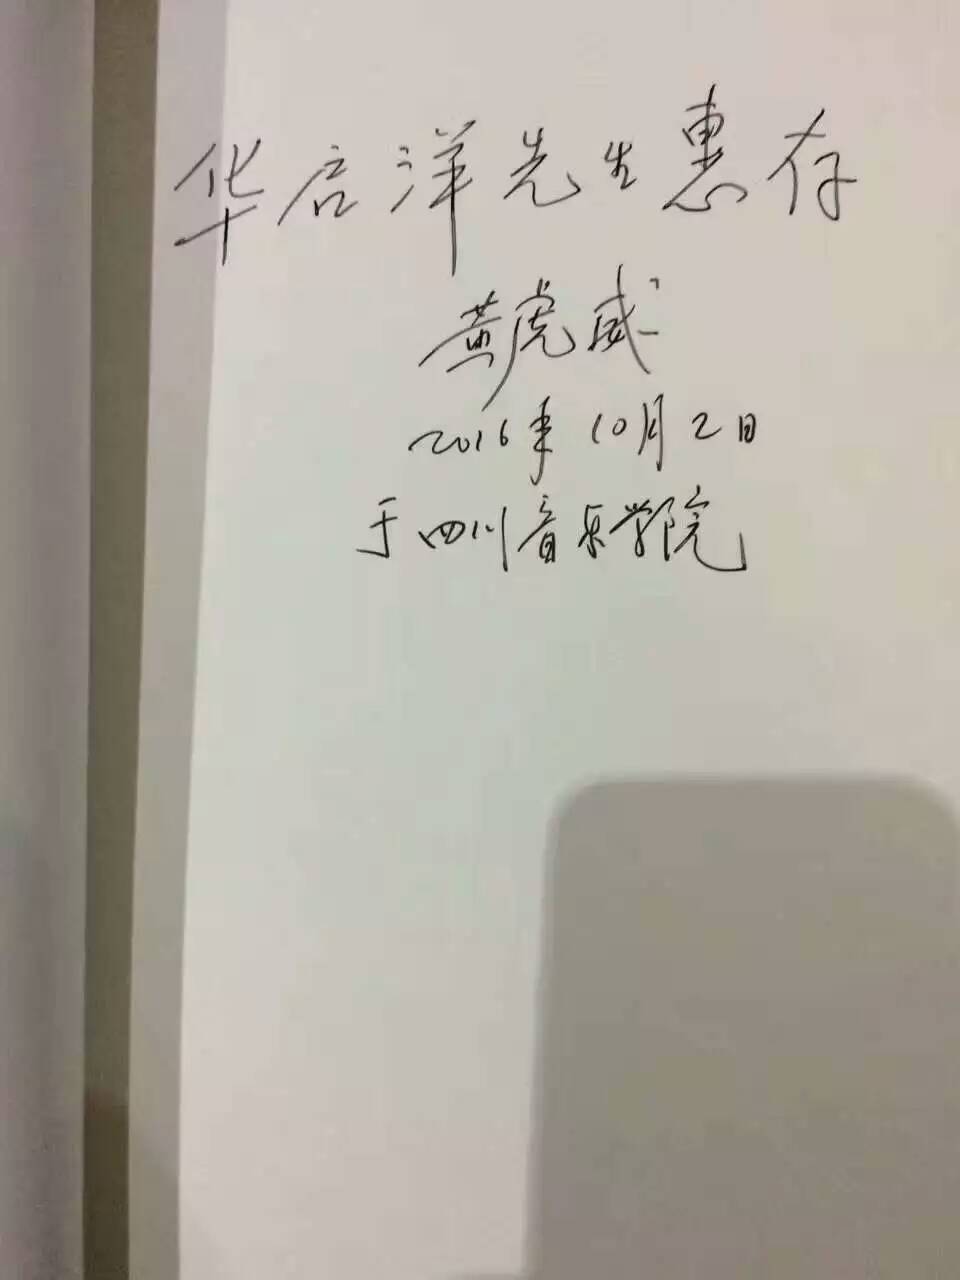 华启洋先生惠存
黄虎威
2016年10月2日
于四川音乐学院